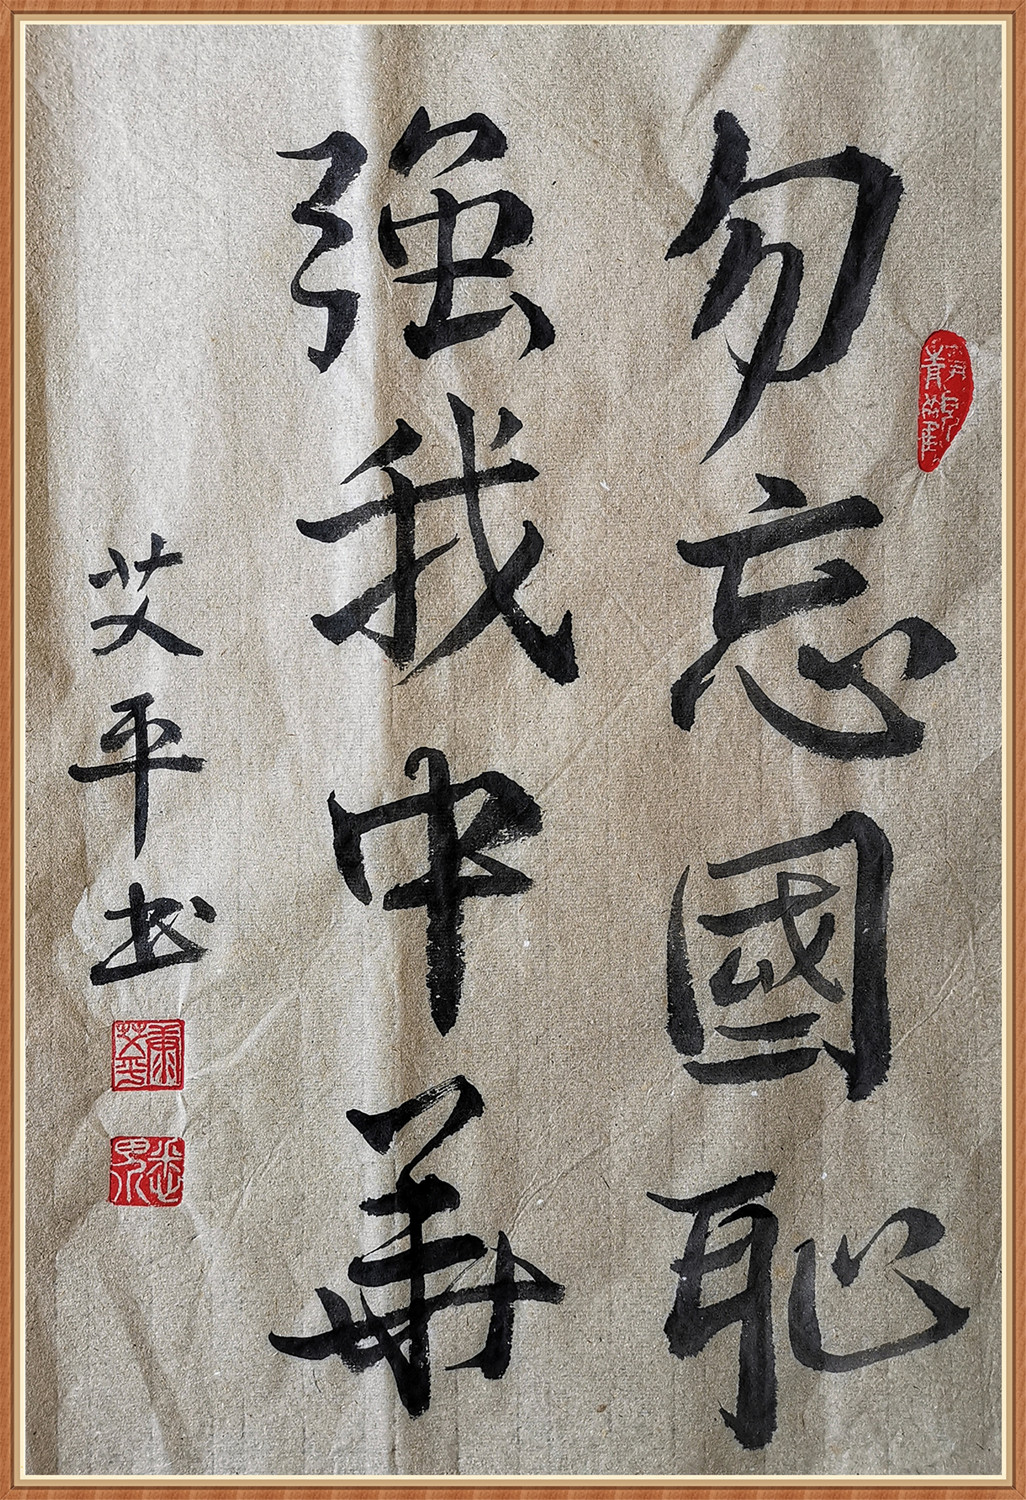 勿忘國恥
強我中華
艾平书